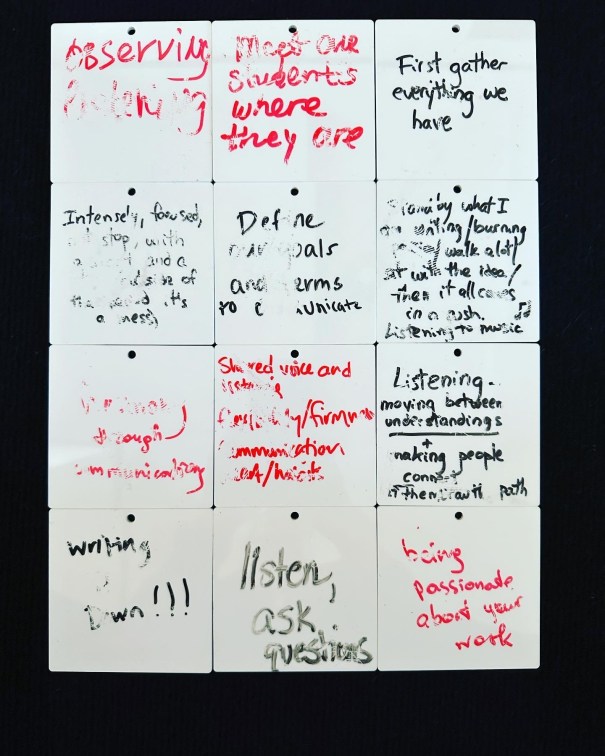 observing
listening
Meet our
students
where
they are
First gather
everything we
have
Intensely, focused,
stop, with
and a
side of
it's
a mess)
Define
our goals
and terms
to communicate
what I
writing/burning
walk a lot/
sit with the idea/
then it all comes
in a rush.
Listening to music
through
communicating
Shared voice and
/firmness
communication
Listening..
moving between
understandings
+
making people
connect
path
writing
Down!!!
listen,
ask
questions
being
passionate
about your
work